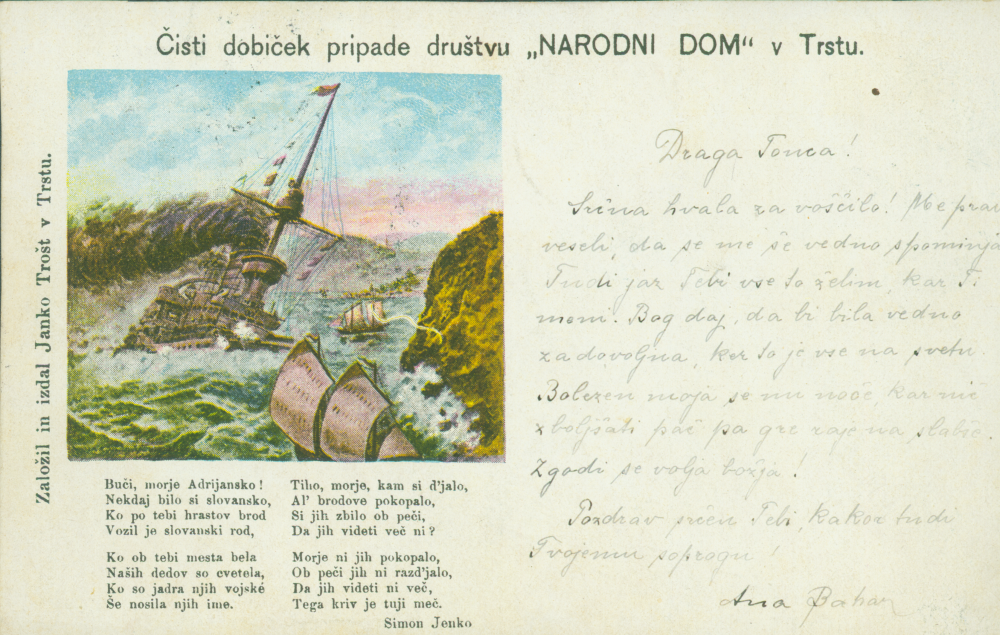 Čisti dobiček pripade društvu „NARODNI DOM“ v Trstu.
Založil in izdal Janko Trošt v Trstu.
Buči, morje Adrijansko!
Nekdaj bilo si slovansko,
Ko po tebi hrastov brod
Vozil je slovanski rod,
Ko ob tebi mesta bela
Naših dedov so cvetela,
Ko so jadra njih vojské
Še nosila njih ime.
Tiho, morje, kam si d'jalo,
Al' brodove pokopalo,
Si jih zbilo ob peči,
Da jih videti več ni?
Morje ni jih pokopalo,
Ob peči jih ni razd'jalo,
Da jih videti ni več,
Tega kriv je tuji meč.
Simon Jenko
Draga Tonca!
Srčna hvala za voščilo! Me prav
veseli, da se me še vedno spominja
Tudi jaz Tebi vse to želim, kar Ti
meni. Bog daj, da bi bila vedno
zadovoljna, ker to je vse na svetu.
Bolezen moja se mi noče kar nič
zboljšati pač pa gre raje na slabše.
Zgodi se volja božja!
Pozdrav srčen Tebi, kakor tudi
Tvojemu soprogu!
Ana